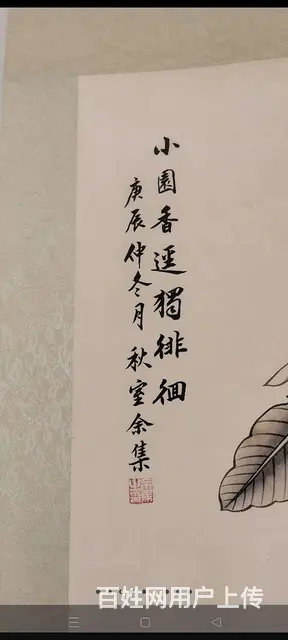 小園香逕獨徘徊
庚辰仲冬月 秋室余集
百姓网用户上传